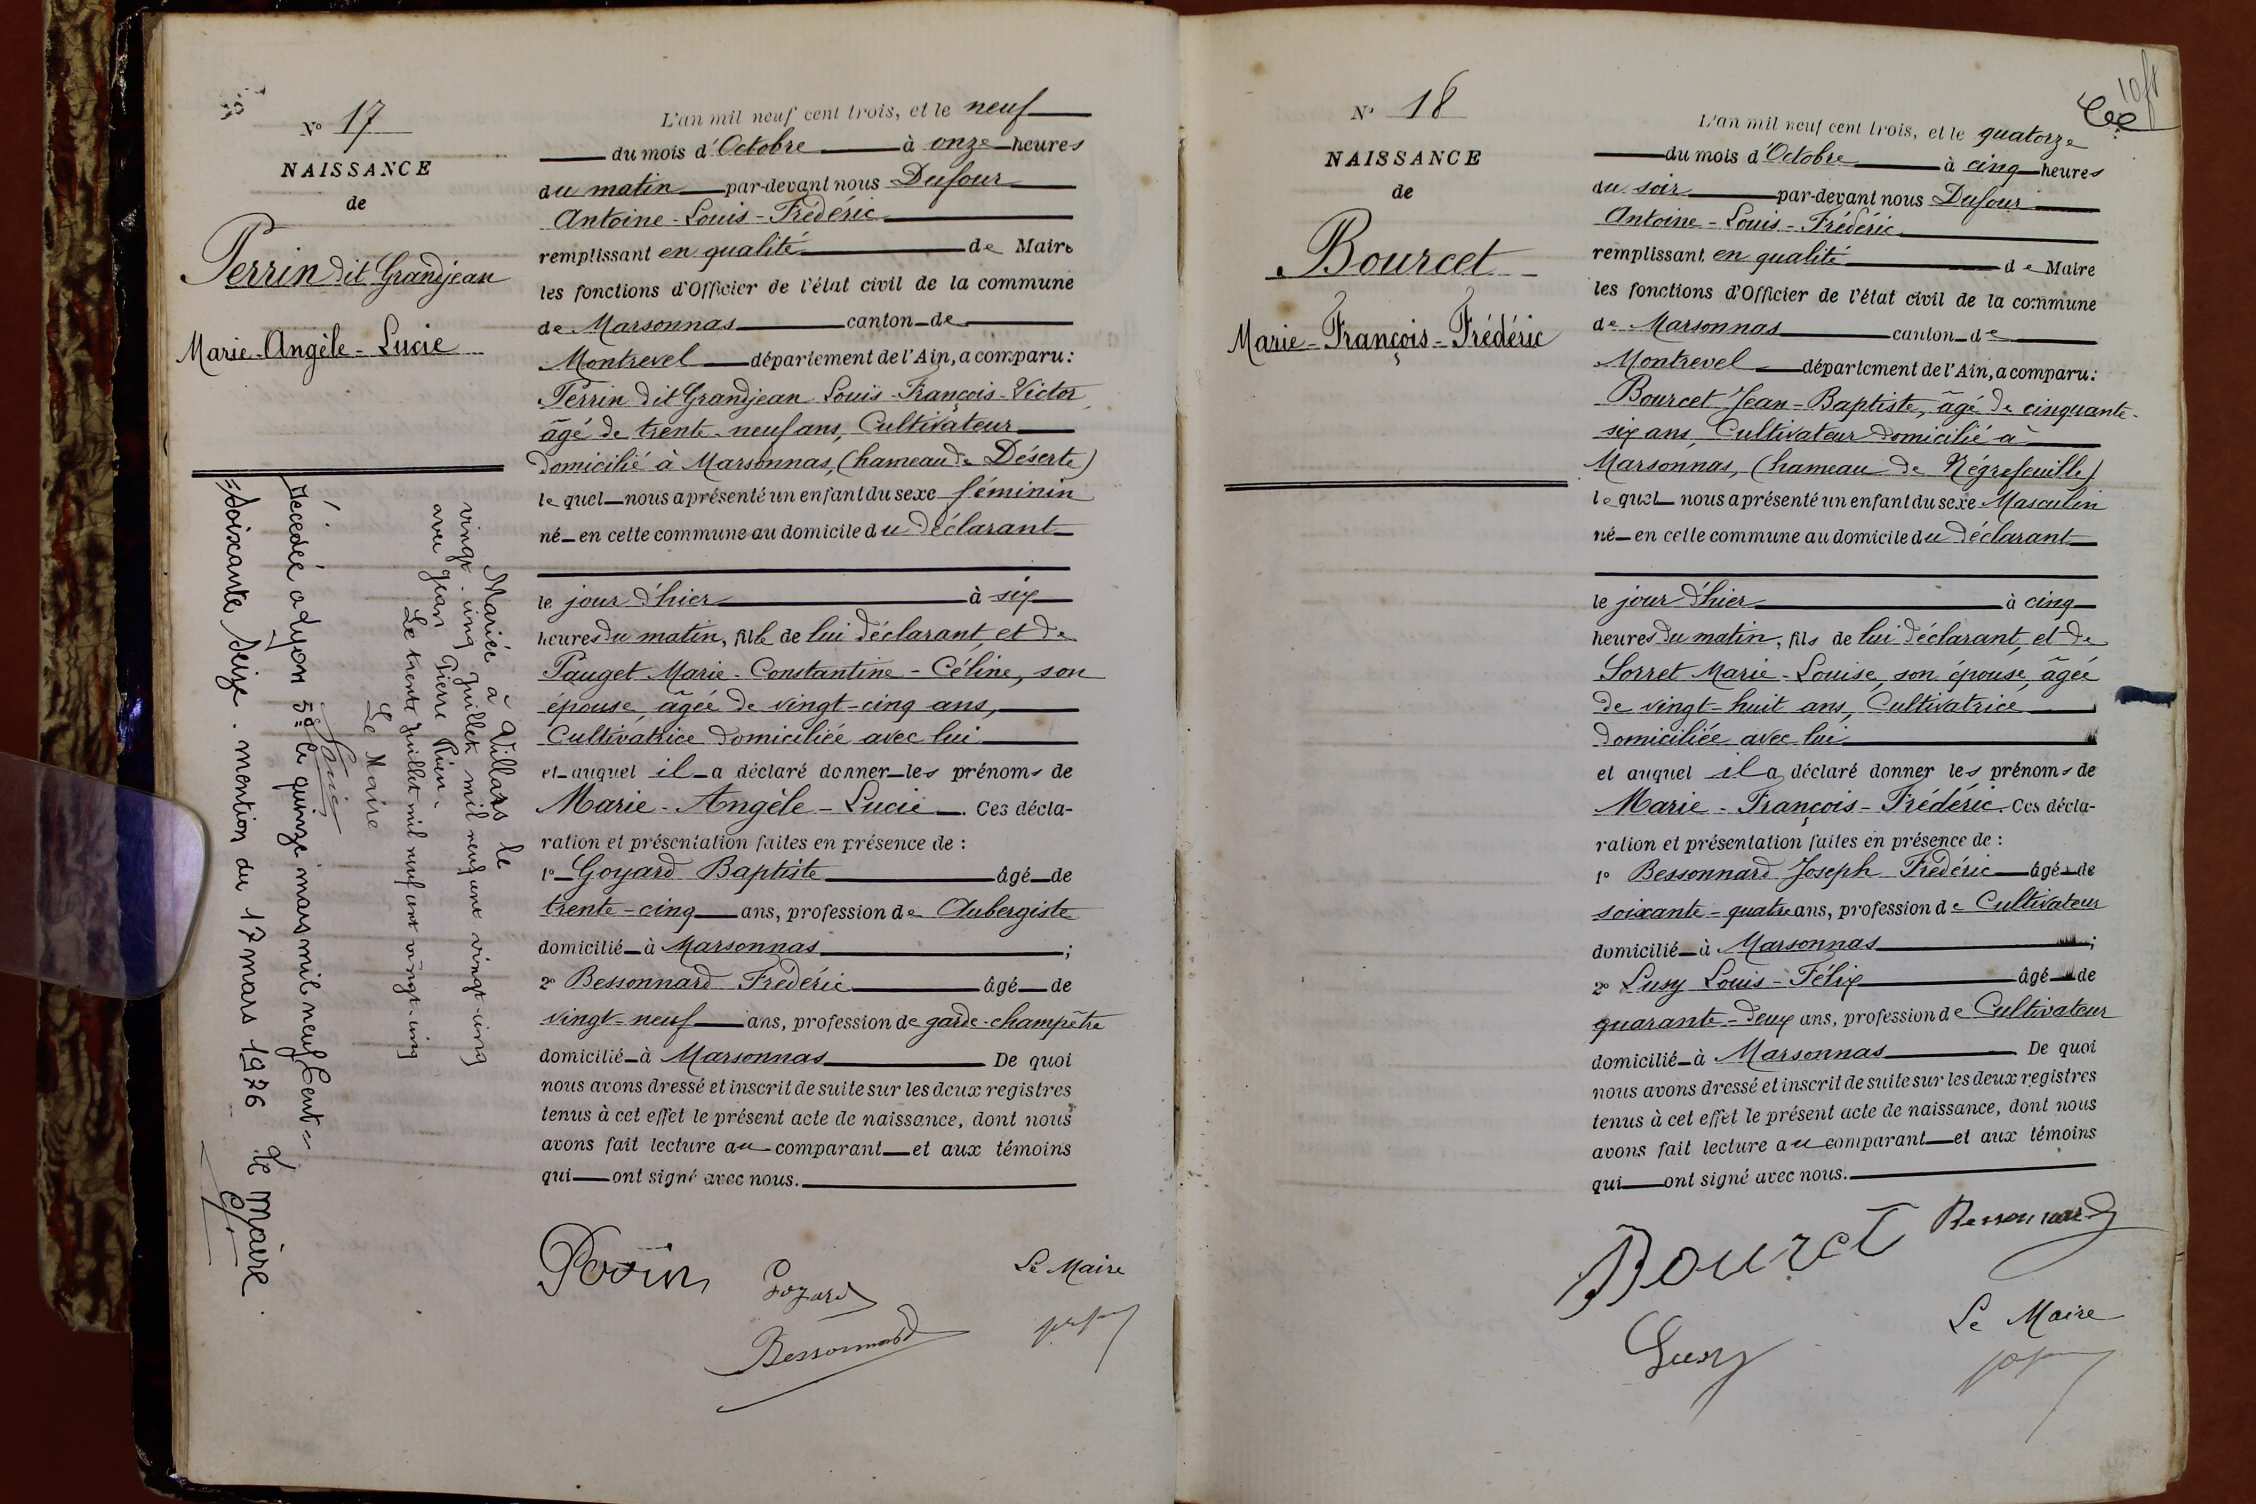 N° 17
NAISSANCE
de
Perrin dit Grandjean
Marie-Angèle-Lucie
Mariée à Villars le
vingt-cinq juillet mil neuf cent vingt-cinq
avec Jean Pierre
Le trente juillet mil neuf cent vingt-cinq
Le Maire
Décédée à Lyon 5e le quinze mars mil neuf cent=
=soixante seize. mention du 17 mars 1976 Le Maire.
L'an mil neuf cent trois, et le neuf
du mois d'Octobre à onze heures
du matin par-devant nous Dufour
Antoine-Louis-Frédéric
remplissant en qualité de Maire
les fonctions d'Officier de l'état civil de la commune
de Marsonnas canton de
Montrevel département de l'Ain, a comparu:
Perrin dit Grandjean Louis-François-Victor
âgé de trente-neuf ans, Cultivateur
domicilié à Marsonnas, (hameau de Déserte)
lequel nous a présenté un enfant du sexe féminin
né en cette commune au domicile du déclarant
le jour d'hier à six
heures du matin, fille de lui déclarant, et de
Pauget Marie-Constantine-Céline, son
épouse, âgée de vingt-cinq ans,
Cultivatrice domiciliée avec lui
et auquel il a déclaré donner les prénoms de
Marie-Angèle-Lucie. Ces décla-
ration et présentation faites en présence de :
1° Goyard Baptiste âgé de
trente-cinq ans, profession de Aubergiste
domicilié à Marsonnas ;
2° Bessonnard Frédéric âgé de
vingt-neuf ans, profession de garde-champêtre
domicilié à Marsonnas De quoi
nous avons dressé et inscrit de suite sur les deux registres
tenus à cet effet le présent acte de naissance, dont nous
avons fait lecture au comparant et aux témoins
qui ont signé avec nous.
Perrin Goyard Le Maire
Bessonnard
N° 18
NAISSANCE
de
Bourcet
Marie-François-Frédéric
L'an mil neuf cent trois, et le quatorze
du mois d'Octobre à cinq heures
du soir par-devant nous Dufour
Antoine-Louis-Frédéric
remplissant en qualité de Maire
les fonctions d'Officier de l'état civil de la commune
de Marsonnas canton de
Montrevel département de l'Ain, a comparu:
Bourcet Jean-Baptiste, âgé de cinquante-
six ans, Cultivateur domicilié à
Marsonnas, (hameau de Négrefeuille)
lequel nous a présenté un enfant du sexe Masculin
né en cette commune au domicile du déclarant
le jour d'hier à cinq
heures du matin, fils de lui déclarant, et de
Sorret Marie-Louise, son épouse, âgée
de vingt-huit ans, Cultivatrice
domiciliée avec lui
et auquel il a déclaré donner les prénoms de
Marie-François-Frédéric. Ces décla-
ration et présentation faites en présence de :
1° Bessonnard Joseph Frédéric âgé de
soixante-quatre ans, profession de Cultivateur
domicilié à Marsonnas ;
2° Lusy Louis-Félix âgé de
quarante-deux ans, profession de Cultivateur
domicilié à Marsonnas De quoi
nous avons dressé et inscrit de suite sur les deux registres
tenus à cet effet le présent acte de naissance, dont nous
avons fait lecture au comparant et aux témoins
qui ont signé avec nous.
Bourcet Bessonnard
Lusy Le Maire